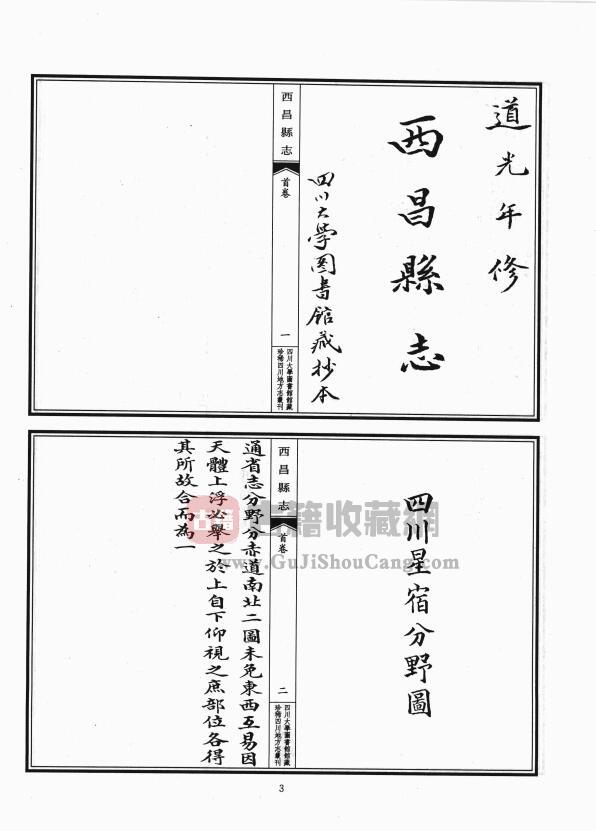 道光年修
西昌縣志
四川大學图書館藏抄本
西昌縣志
首卷
一
四川大學圖書館館藏
珍稀四川地方志叢刊
四川星宿分野圖
西昌縣志
首卷
二
四川大學圖書館館藏
珍稀四川地方志叢刊
通省志分野分赤道南北二圖未免東西互易因
天體上浮必舉之於上自下仰視之庶部位各得
其所故合而為一
古籍
古籍收藏網
www.GuJiShouCang.com
3